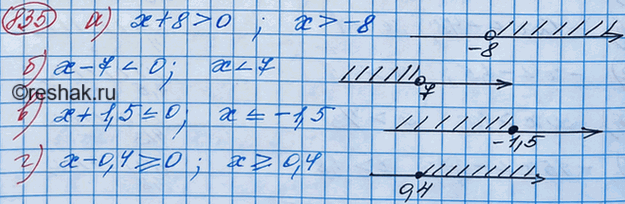 835 а) x+8>0 ; x>-8 -8
б) x-7<0; x<7 7
©reshak.ru
в) x+1,5≤0; x≤-1,5 -1,5
г) x-0,4≥0; x≥0,4 0,4